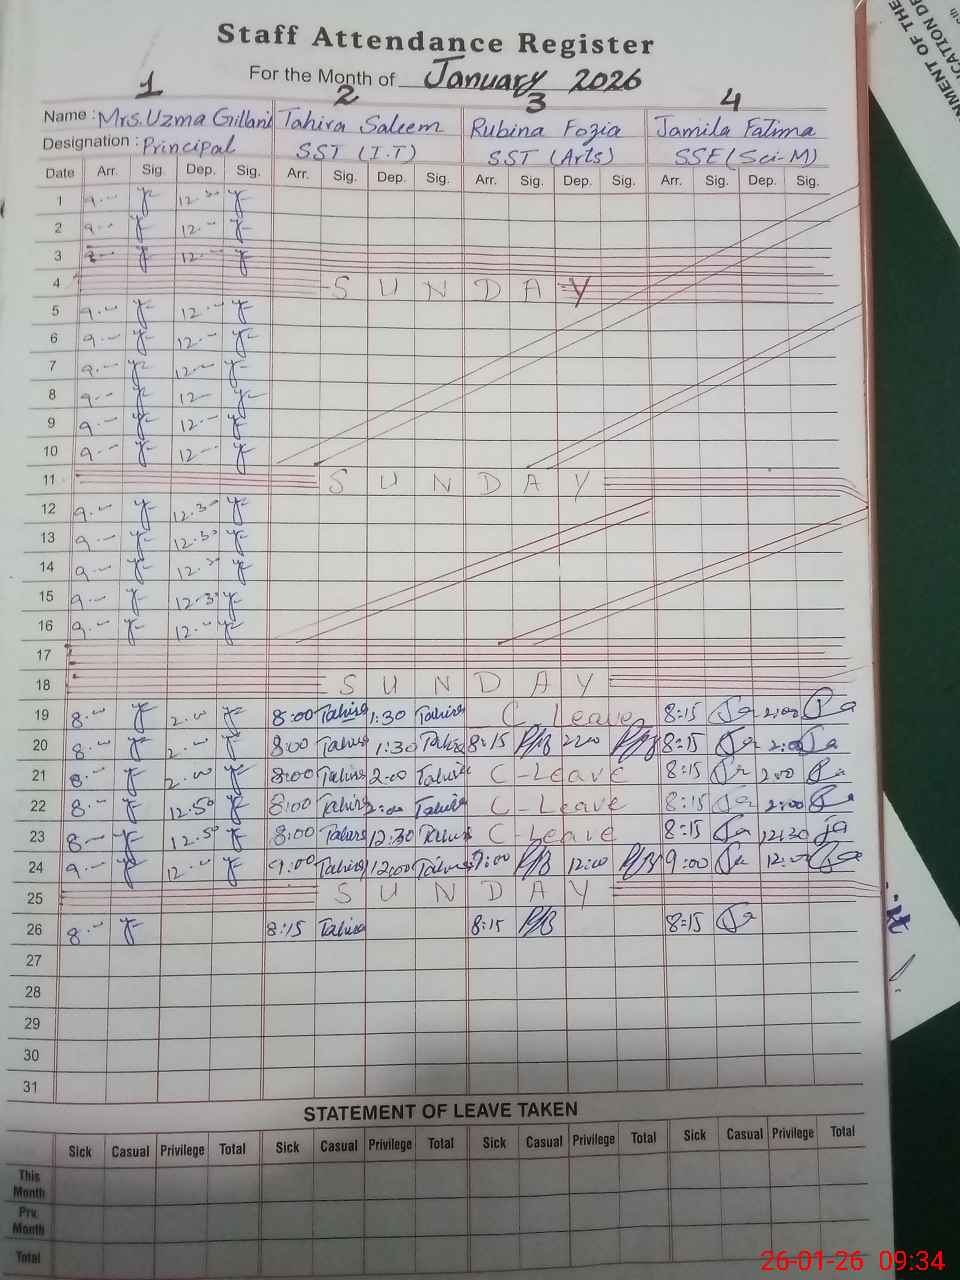 Staff Attendance Register
For the Month of January 2026
1 2 3 4
Name : Mrs. Uzma Gillani Tahira Saleem Rubina Fozia Jamila Fatima
Designation : Principal SST (I.T) SST (Arts) SSE (Sci-M)
Date Arr. Sig. Dep. Sig. Arr. Sig. Dep. Sig. Arr. Sig. Dep. Sig. Arr. Sig. Dep. Sig.
1 9.-- 12.30
2 9.-- 12.--
3 9.-- 12.--
4 S U N D A Y
5 9.-- 12.--
6 9.-- 12.--
7 9.-- 12--
8 9.-- 12-
9 9.-- 12.--
10 9.-- 12--
11 S U N D A Y
12 9.-- 12.30
13 9.-- 12.30
14 9.-- 12.30
15 9.-- 12.30
16 9.-- 12.--
17
18 S U N D A Y
19 8.-- 2.00 8:00 Tahira 1:30 Tahira C Leave 8:15 Ja 2:00 Ja
20 8.-- 2.-- 8:00 Tahira 1:30 Tahira 8:15 2:00 8:15 Ja 2:00 Ja
21 8.-- 2.00 8:00 Tahira 2:00 Tahira C-Leave 8:15 Ja 2:00 Ja
22 8.-- 12.50 8:00 Tahira 2:00 Tahira C-Leave 8:15 Ja 2:00 Ja
23 8.-- 12.50 8:00 Tahira 12:30 Tahira C-Leave 8:15 Ja 12:30 Ja
24 9.-- 12.-- 9:00 Tahira 12:00 Tahira 9:00 12:00 9:00 Ja 12:00 Ja
25 S U N D A Y
26 8.-- 8:15 Tahira 8:15 8:15 Ja
27
28
29
30
31
STATEMENT OF LEAVE TAKEN
Sick Casual Privilege Total Sick Casual Privilege Total Sick Casual Privilege Total Sick Casual Privilege Total
This Month
Prv. Month
Total
26-01-26 09:34